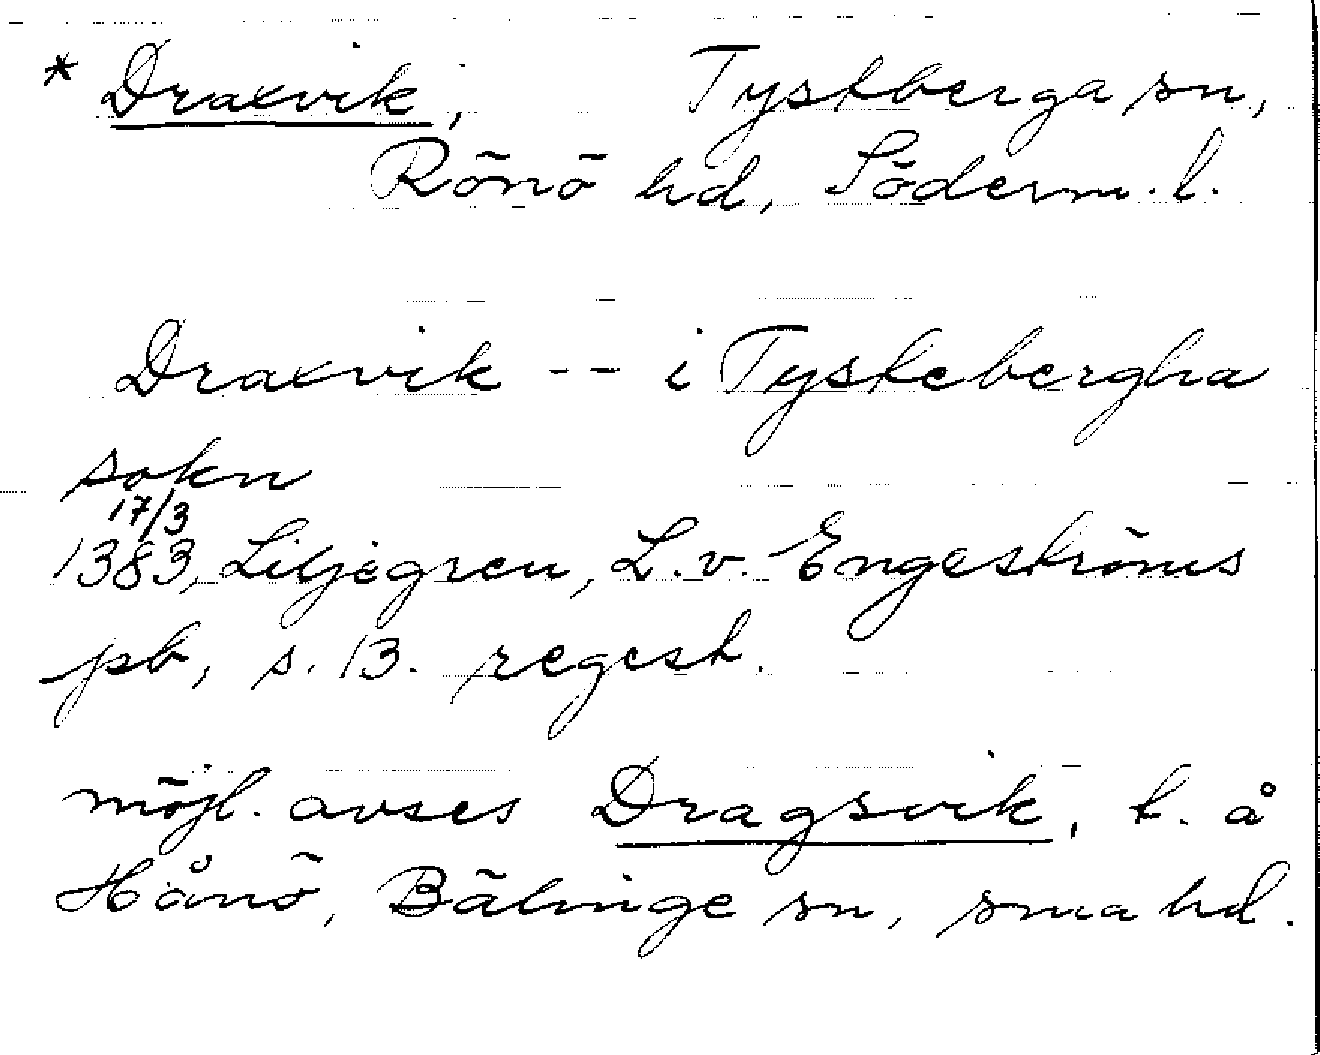 * Draxvik, Tystberga sn,
Rönö hd, Söderm. l.
Draxvik -- i Tystebergha
sokn
17/3
1383, Liljegren, L. v. Engeströms
pb, s. 13. regest.
möjl. avses Dragsvik, t. å
Hånö, Bälinge sn, sma hd.